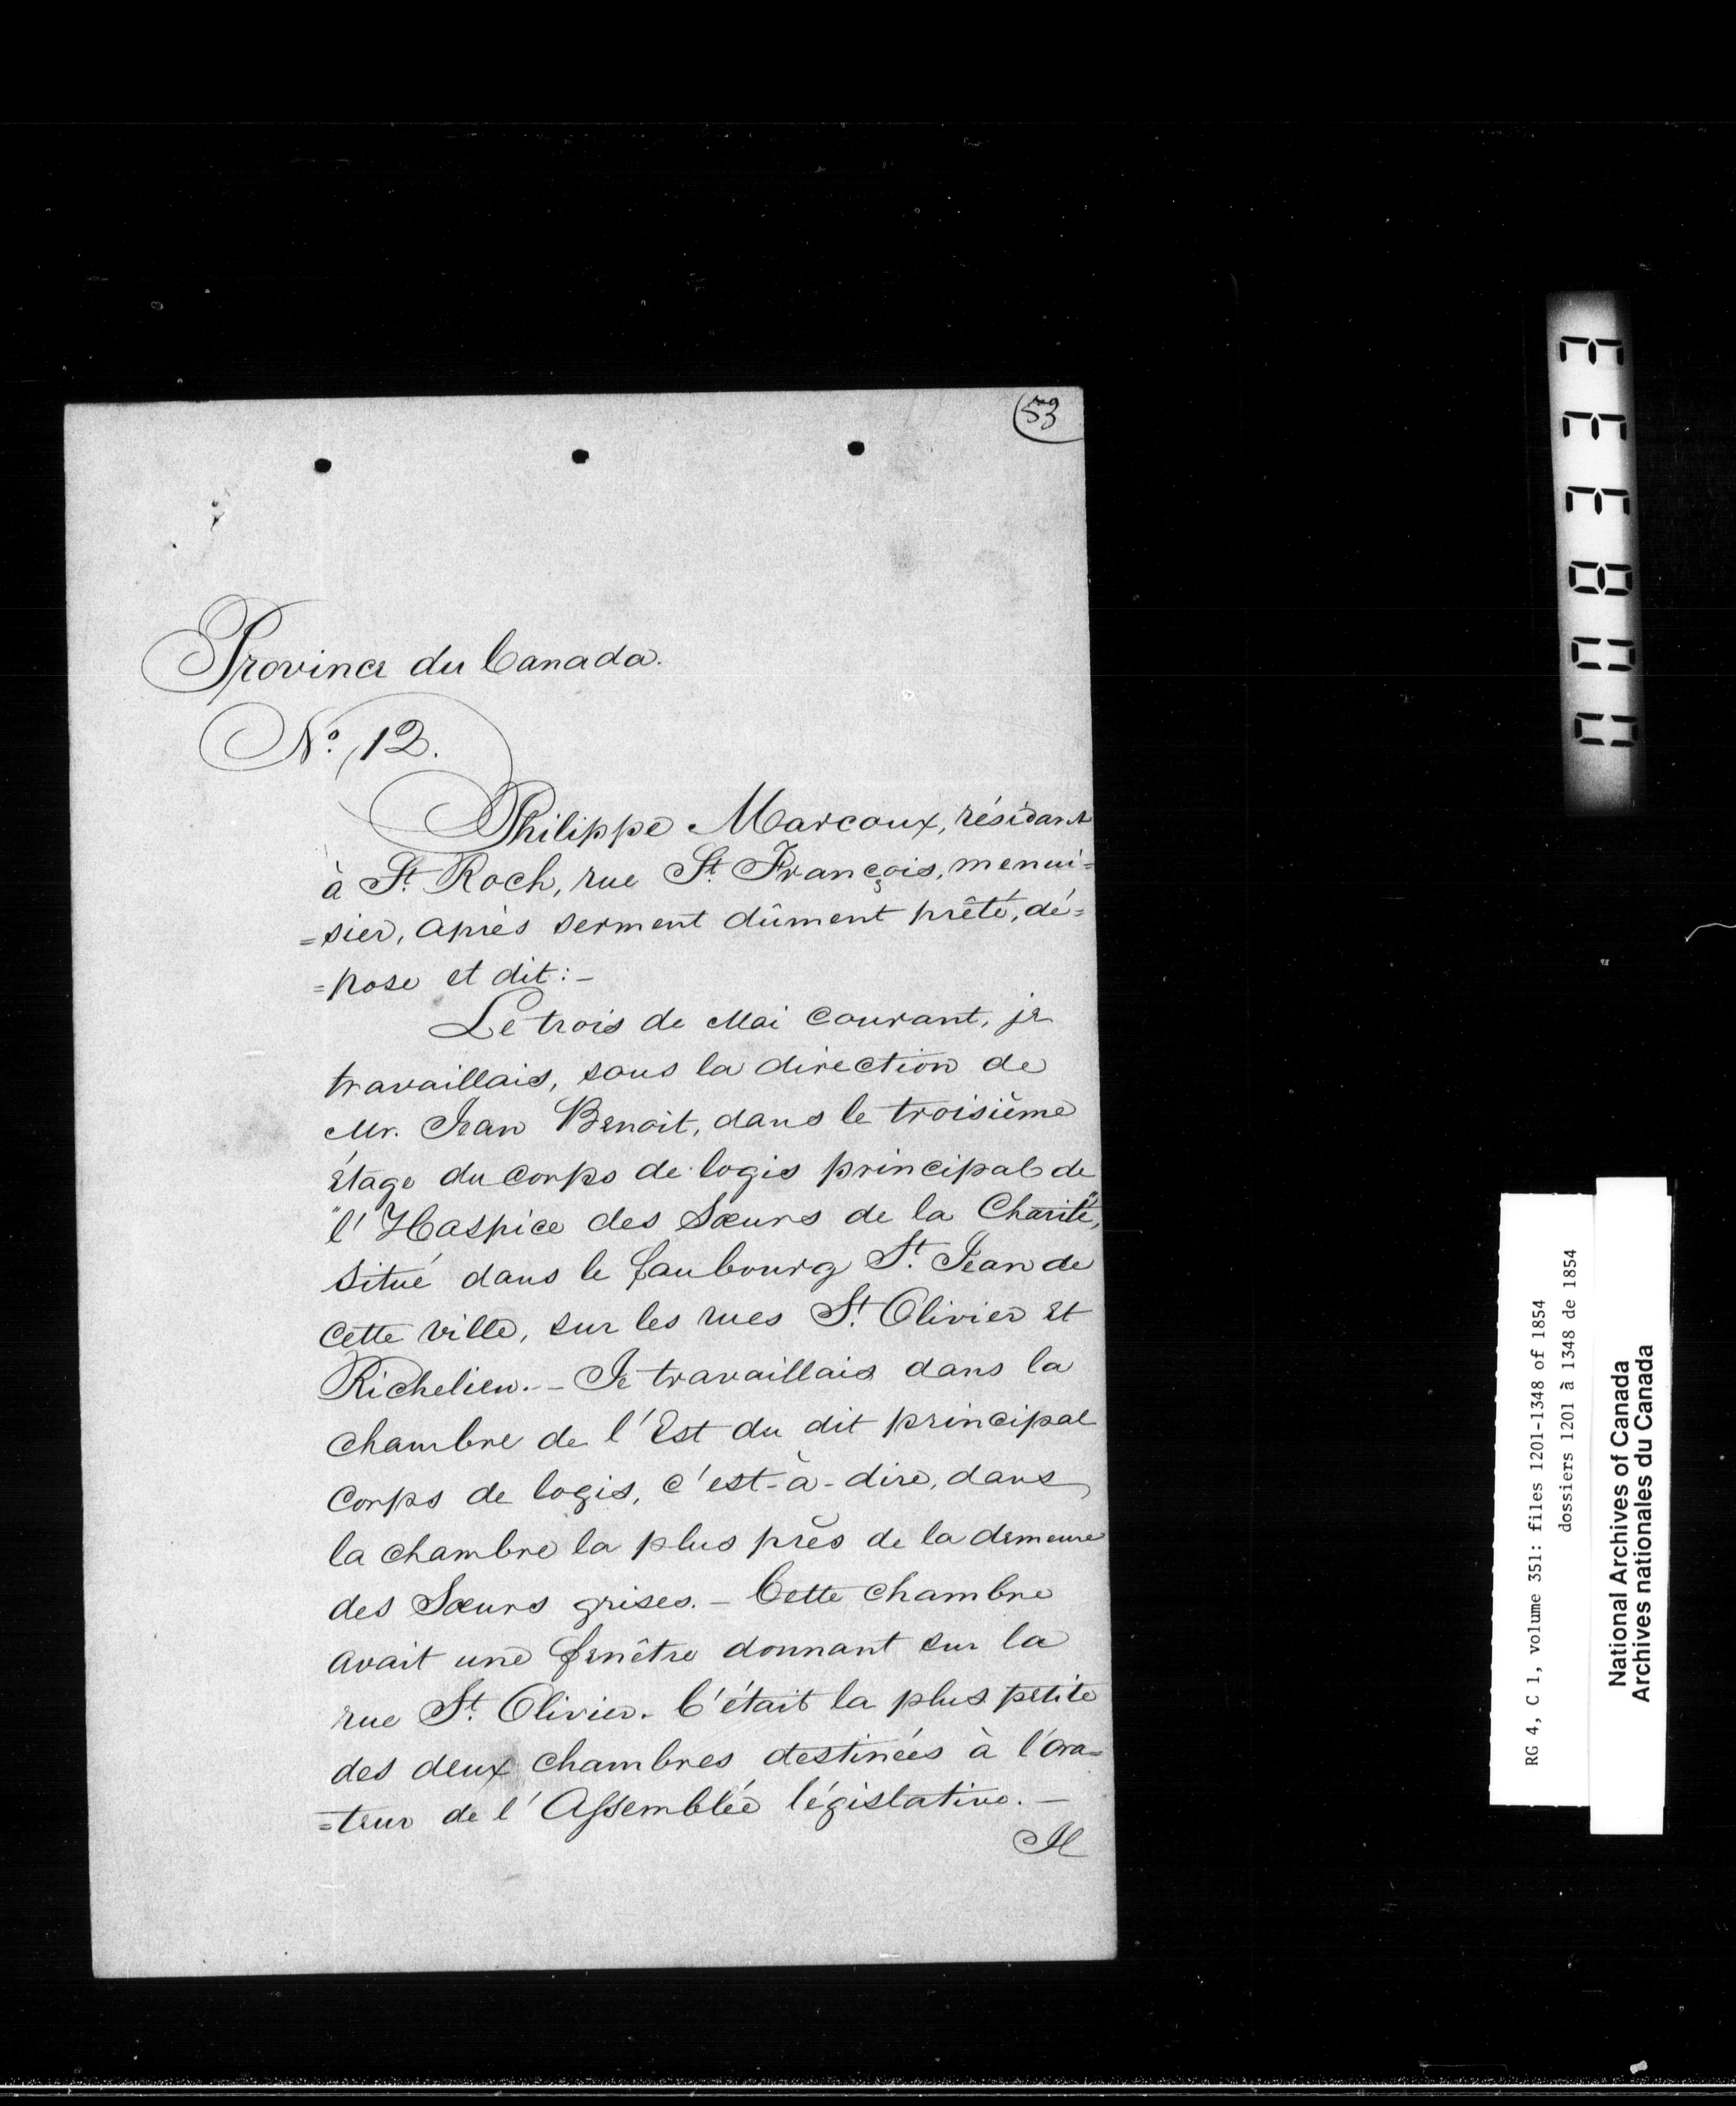 53
Province du Canada.
No. 12.
Philippe Marcoux, résidant
à St. Roch, rue St. François, menui=
=sier, après serment dûment prêté, dé=
=pose et dit:-
Le trois de Mai courant, je
travaillais, sous la direction de
Mr. Jean Benoit, dans le troisième
étage du corps de logis principal de
"l'Hospice des Sœurs de la Charité",
situé dans le faubourg St. Jean de
cette ville, sur les rues St. Olivier et
Richelieu. - Je travaillais dans la
chambre de l'Est du dit principal
corps de logis, c'est-à-dire, dans
la chambre la plus près de la demeure
des Sœurs grises. - Cette chambre
avait une fenêtre donnant sur la
rue St. Olivier. C'était la plus petite
des deux chambres destinées à l'Ora=
=teur de l'Assemblée législative. -
Il
RG 4, C 1, volume 351: files 1201-1348 of 1854
dossiers 1201 à 1348 de 1854
National Archives of Canada
Archives nationales du Canada